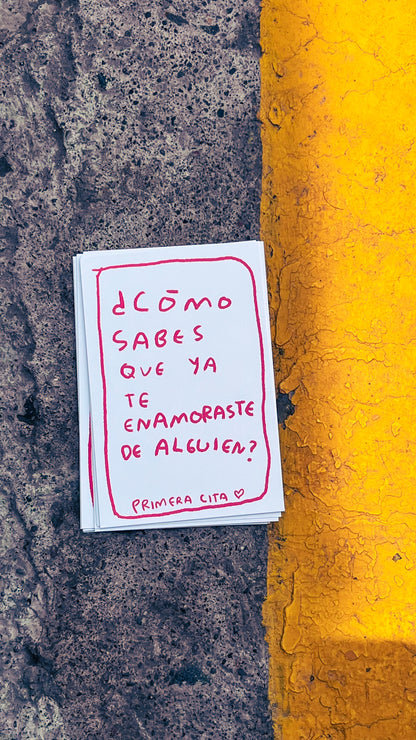 ¿CÓMO
SABES
QUE YA
TE
ENAMORASTE
DE ALGUIEN?
PRIMERA CITA ♡